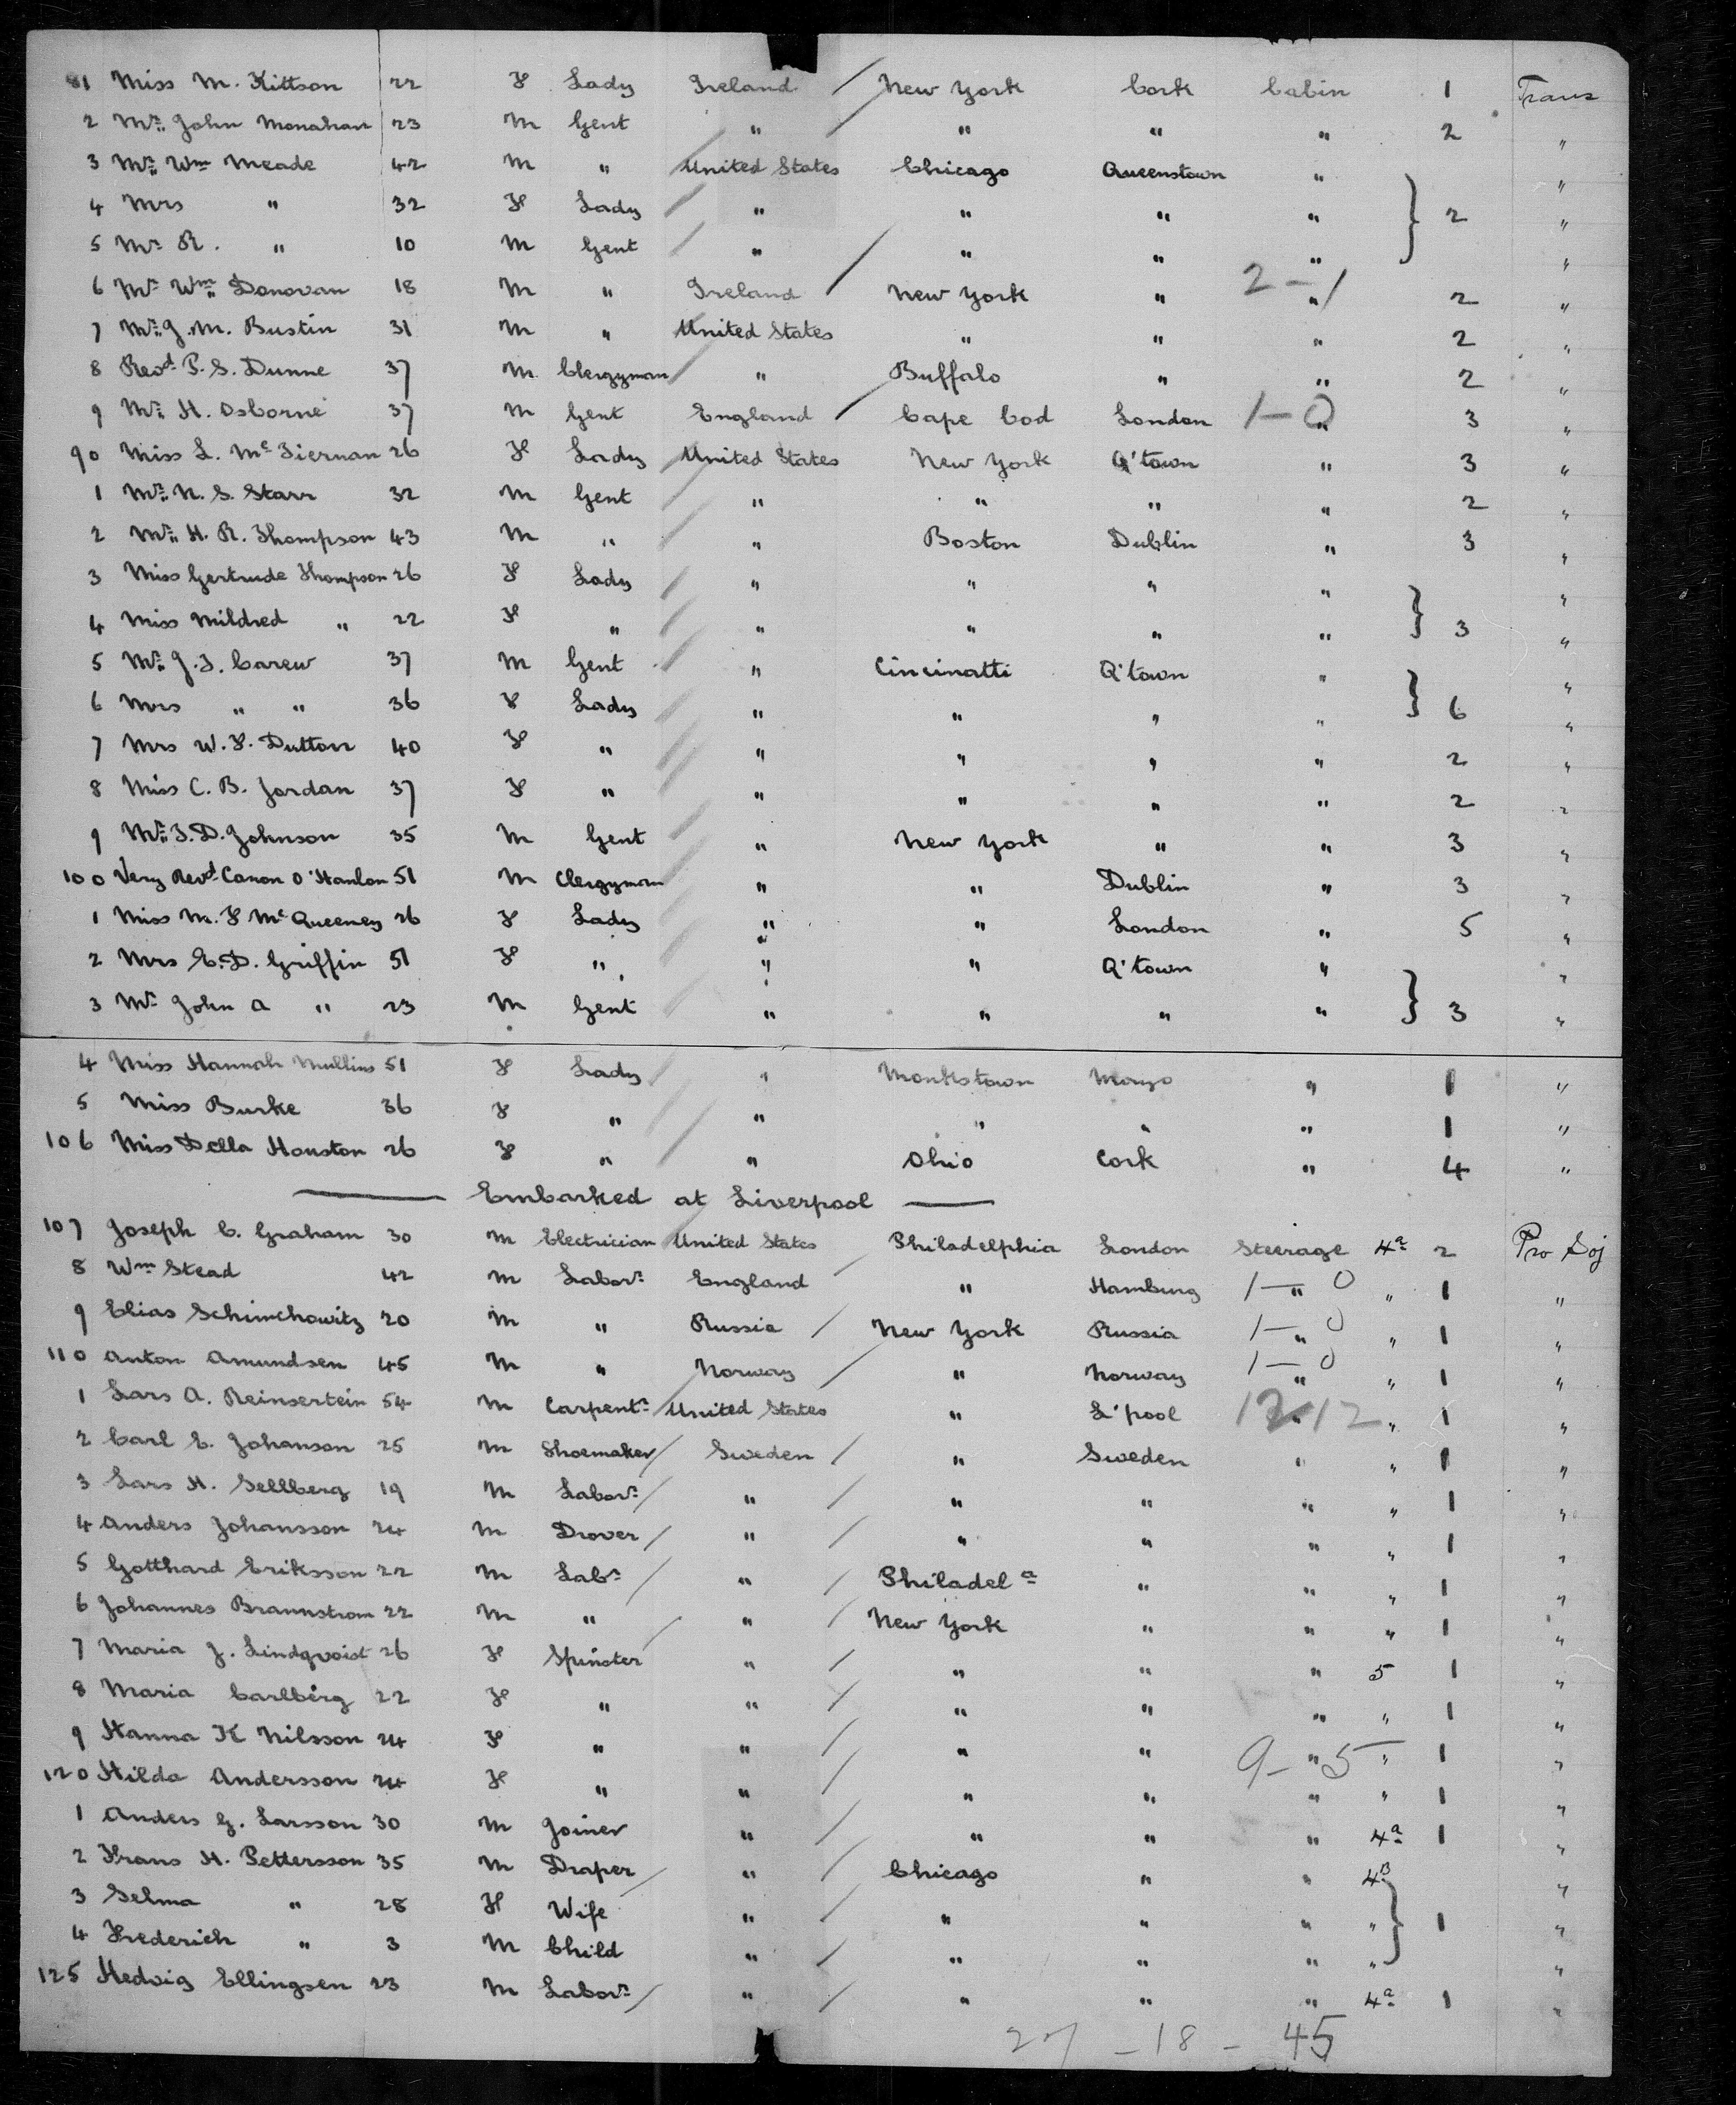 81 Miss M. Kittson 22 F Lady Ireland New York Cork Cabin 1 Trans
2 Mr. John Monahan 23 M Gent " " " " 2 "
3 Mr. Wm Meade 42 M " United States Chicago Queenstown " "
4 Mrs " 32 F Lady " " " " } 2 "
5 Mr R. " 10 M Gent " " " " "
6 Mr Wm Donovan 18 M " Ireland New York " 2-1 " 2 "
7 Mr. J. M. Bustin 31 M " United States " " " 2 "
8 Revd. P. S. Dunne 37 M Clergyman " Buffalo " " 2 "
9 Mr. H. Osborne 37 M Gent England Cape Cod London 1-0 " 3 "
90 Miss L. McTiernan 26 F Lady United States New York Q'town " 3 "
1 Mr. N. S. Starr 32 M Gent " " " " 2 "
2 Mr. H. R. Thompson 43 M " " Boston Dublin " 3 "
3 Miss Gertrude Thompson 26 F Lady " " " " "
4 Miss Mildred " 22 F " " " " " } 3 "
5 Mr. J. J. Carew 37 M Gent " Cincinatti Q'town " "
6 Mrs " " 36 F Lady " " " " } 6 "
7 Mrs W. F. Dutton 40 F " " " " " 2 "
8 Miss C. B. Jordan 37 F " " " " " 2 "
9 Mr. T. D. Johnson 35 M Gent " New York " " 3 "
100 Very Revd. Canon O'Hanlon 51 M Clergyman " " Dublin " 3 "
1 Miss M. F McQueeney 26 F Lady " " London " 5 "
2 Mrs E. D. Griffin 51 F " " " Q'town " "
3 Mr John A " 23 M Gent " " " " } 3 "
4 Miss Hannah Mullins 51 F Lady " Monkstown Mayo " 1 "
5 Miss Burke 36 F " " " " " 1 "
106 Miss Della Houston 26 F " " Ohio Cork " 4 "
Embarked at Liverpool
107 Joseph C. Graham 30 M Electrician United States Philadelphia London Steerage 4a 2 Pro Soj
8 Wm Stead 42 M Labor. England " Hamburg 1-0 " " 1 "
9 Elias Schimchowitz 20 M " Russia New York Russia 1-0 " " 1 "
110 Anton Amundsen 45 M " Norway " Norway 1-0 " " 1 "
1 Lars A. Reinsertein 54 M Carpent. United States " L'pool 12-12 " 1 "
2 Carl E. Johanson 25 M Shoemaker Sweden " Sweden " " 1 "
3 Lars H. Sellberg 19 M Labor. " " " " " 1 "
4 Anders Johansson 24 M Drover " " " " " 1 "
5 Gotthard Eriksson 22 M Labr " Philadela " " " 1 "
6 Johannes Brannstrom 22 M " " New York " " " 1 "
7 Maria J. Lindqvoist 26 F Spinster " " " " 5 1 "
8 Maria Carlberg 22 F " " " " " " 1 "
9 Hanna K Nilsson 24 F " " " " 9-5 " " 1 "
120 Hilda Andersson 24 F " " " " " " 1 "
1 Anders G. Larsson 30 M Joiner " " " " 4a 1 "
2 Frans H. Pettersson 35 M Draper " Chicago " " 4B "
3 Selma " 28 F Wife " " " " " } 1 "
4 Frederich " 3 M Child " " " " " "
125 Hedvig Ellingsen 23 M Labor. " " " " 4a 1 "
27 - 18 - 45